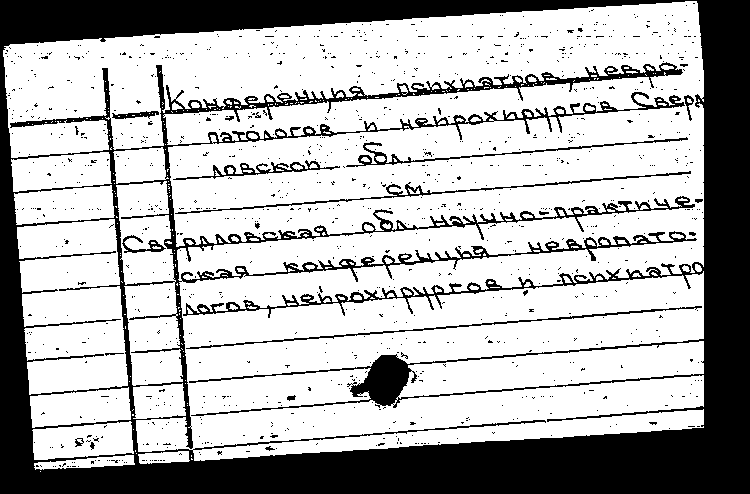 Конференция психиатров, невро-
патологов и нейрохирургов Сверд
ловской обл.
см.
Свердловская обл. научно-практиче-
ская конференция невропато-
логов, нейрохирургов и психиатро